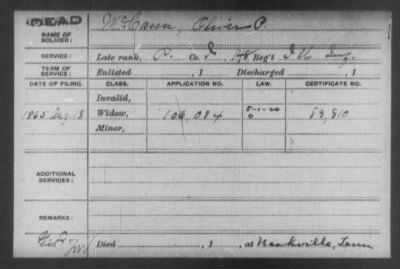 DEAD
NAME OF SOLDIER: McCann, Oliver P.
SERVICE: Late rank, P. Co. I, Reg't Ill. Inf.
TERM OF SERVICE: Enlisted , 1 Discharged , 1
DATE OF FILING. CLASS. APPLICATION NO. LAW. CERTIFICATE NO.
Invalid,
1865 Aug 18 Widow, 106,084 83,810
Minor,
ADDITIONAL SERVICES:
REMARKS:
Died , 1 , at Nashville, Tenn